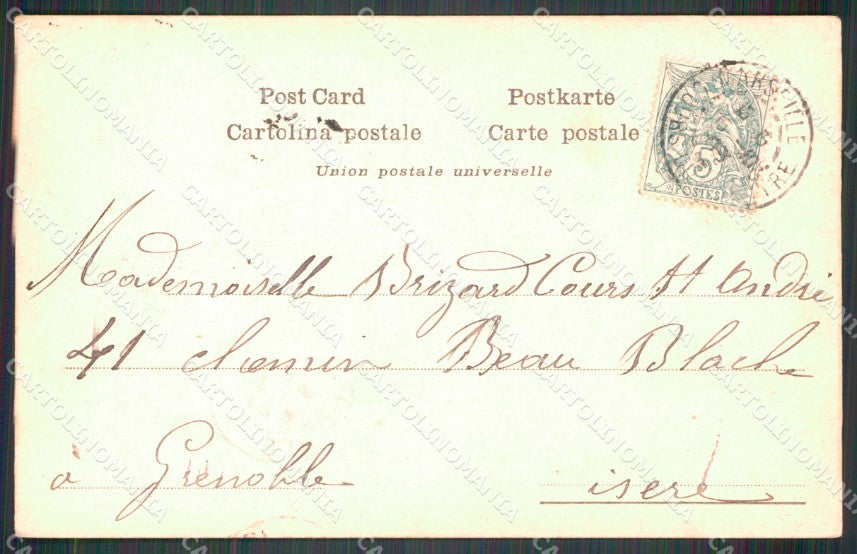 Post Card Postkarte
Cartolina postale Carte postale
Union postale universelle
MARSEILLE
5
POSTES
Mademoiselle Brizard Cours St André
41 chemin Beau Blache
à Grenoble
isère
CARTOLINOMANIA